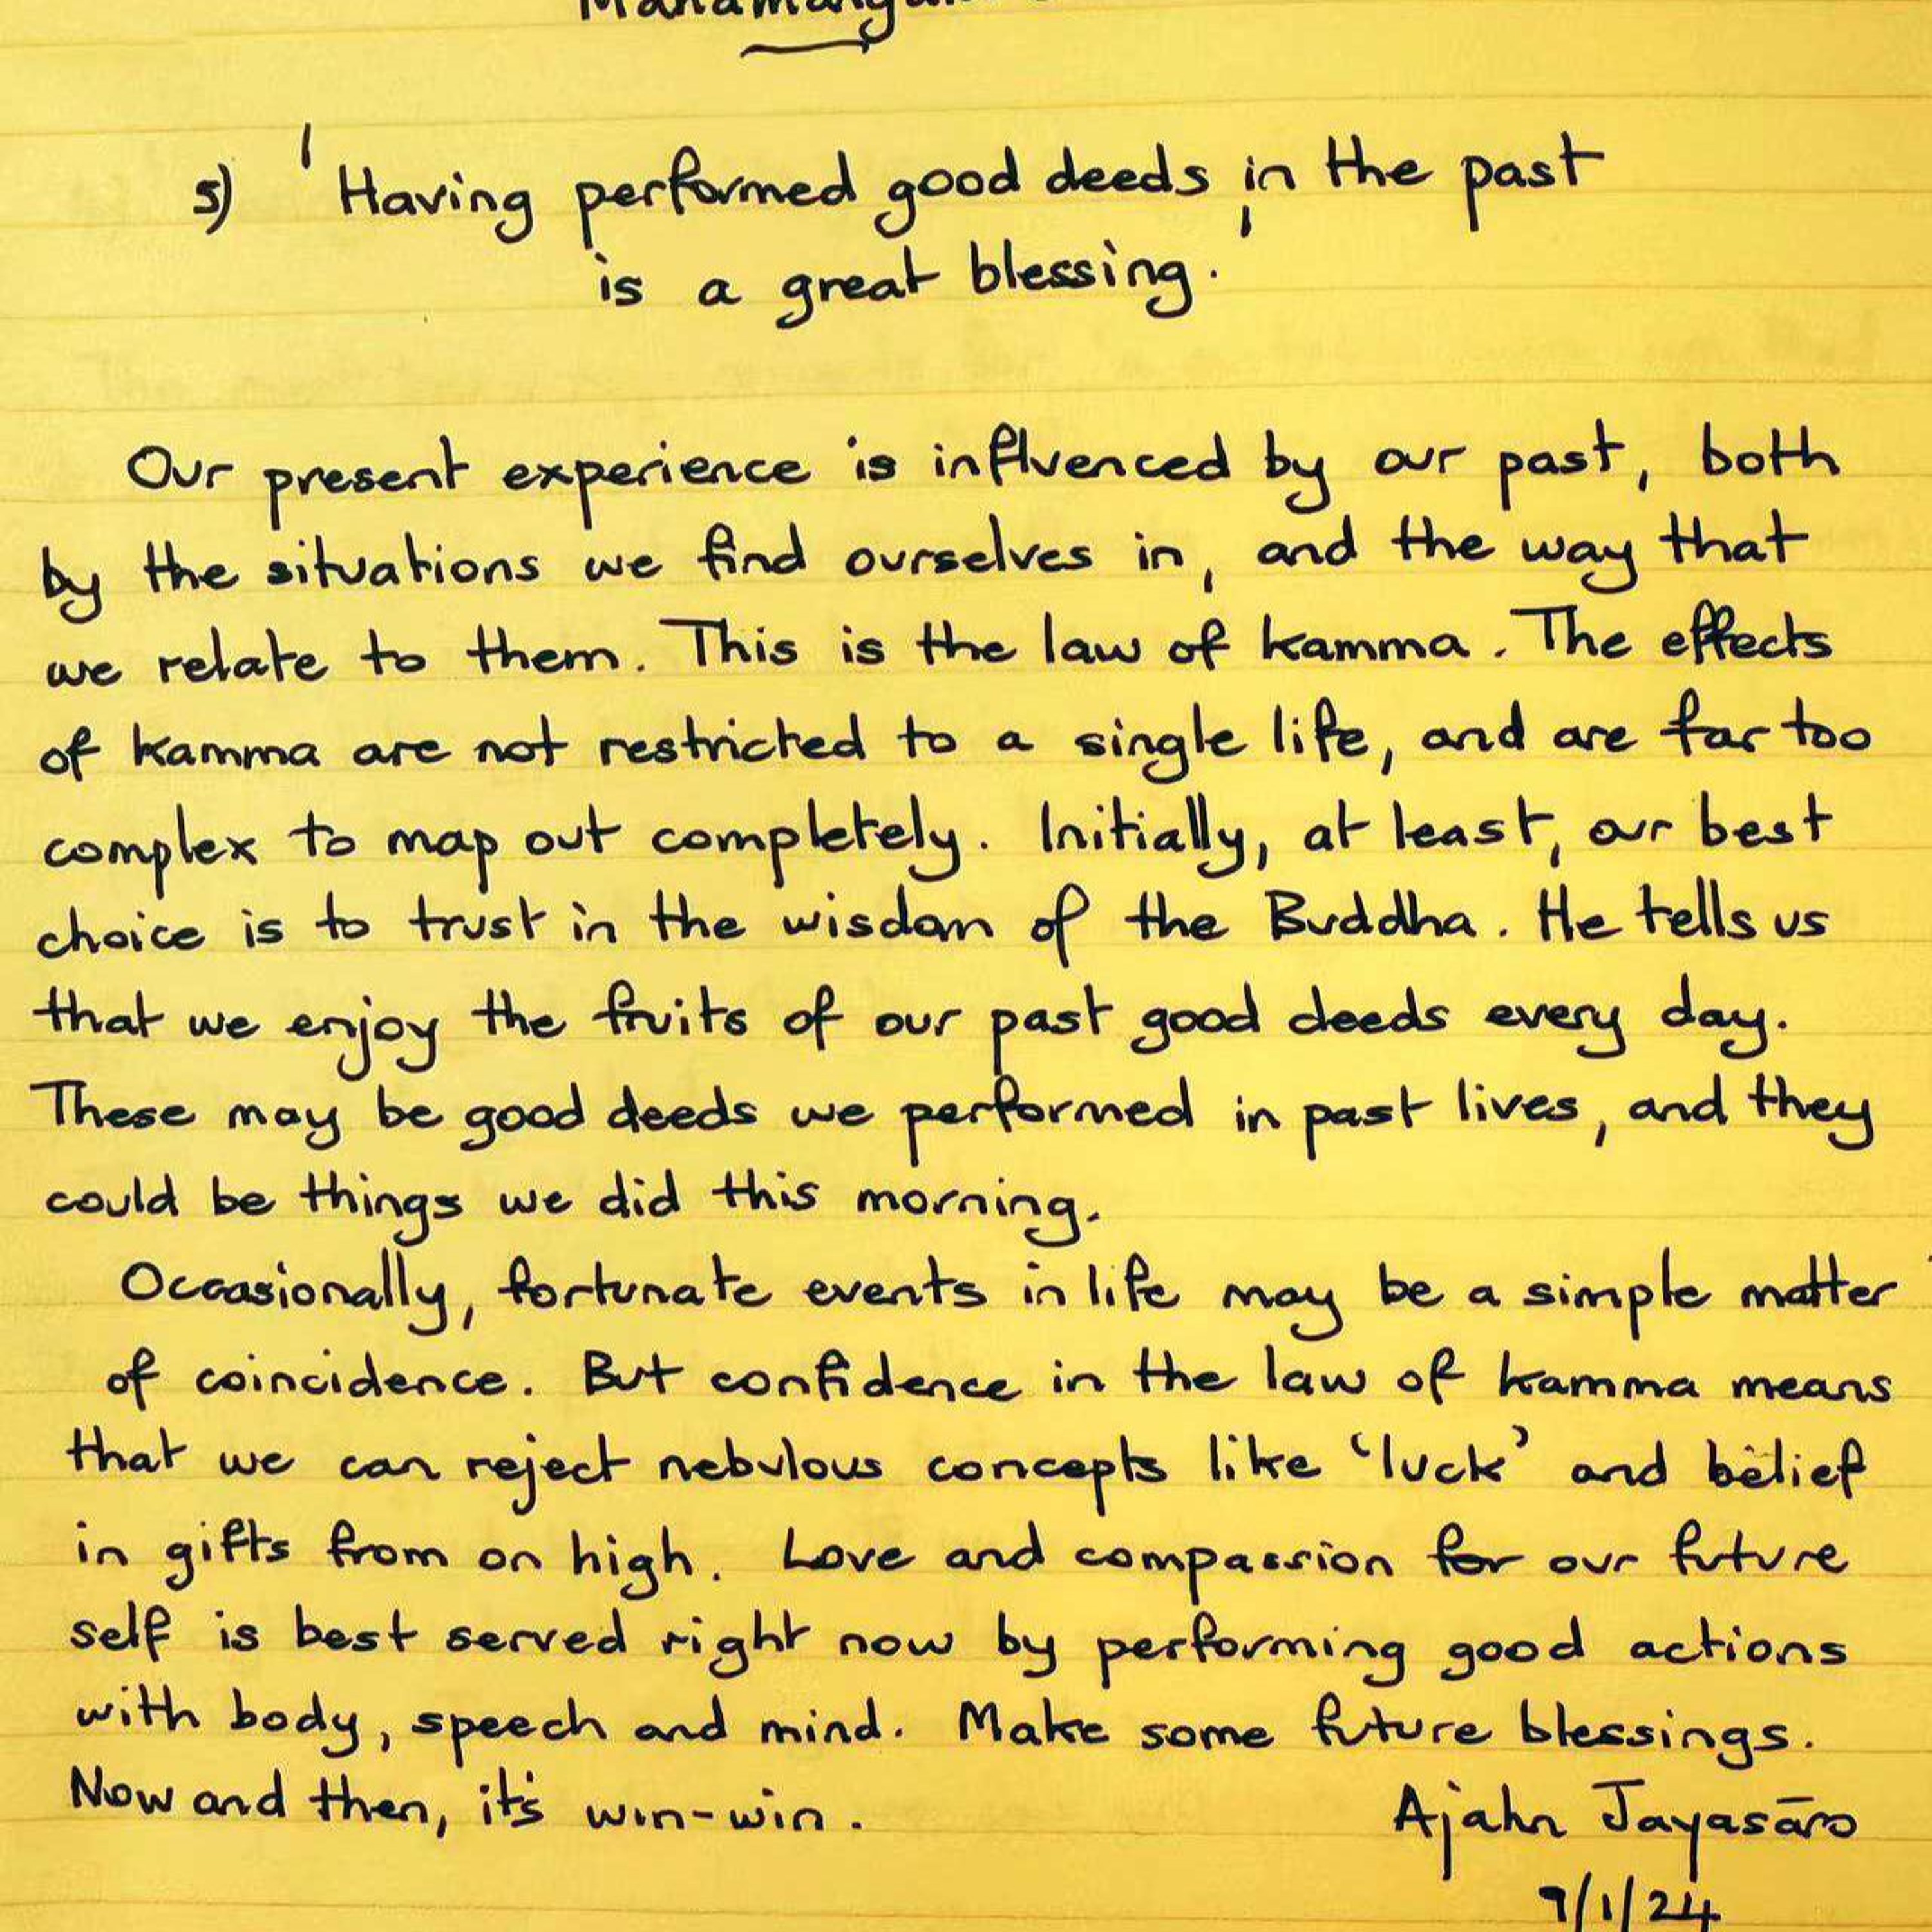 5) 'Having performed good deeds in the past
is a great blessing.'
Our present experience is influenced by our past, both
by the situations we find ourselves in, and the way that
we relate to them. This is the law of kamma. The effects
of kamma are not restricted to a single life, and are far too
complex to map out completely. Initially, at least, our best
choice is to trust in the wisdom of the Buddha. He tells us
that we enjoy the fruits of our past good deeds every day.
These may be good deeds we performed in past lives, and they
could be things we did this morning.
Occasionally, fortunate events in life may be a simple matter
of coincidence. But confidence in the law of kamma means
that we can reject nebulous concepts like 'luck' and belief
in gifts from on high. Love and compassion for our future
self is best served right now by performing good actions
with body, speech and mind. Make some future blessings.
Now and then, it's win-win.
Ajahn Jayasāro
9/1/24